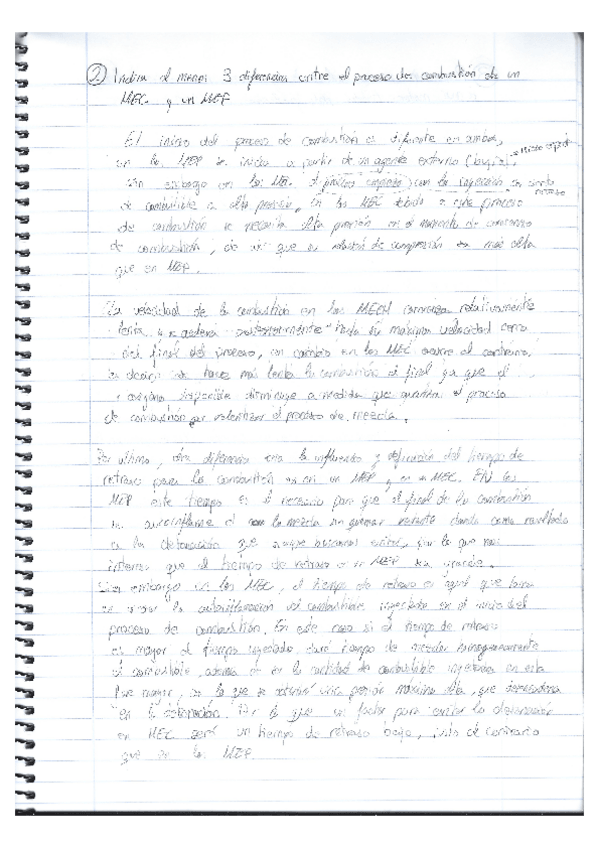 ② Indica al menos 3 diferencias entre el proceso de combustión de un
MEC y un MEP
El inicio del proceso de combustión es diferente en ambos,
en los MEP se inicia a partir de un agente externo (bujía),
sin embargo en los MEC el proceso con la inyección
de combustible a alta presión, en los MEC debido a este proceso
de combustión se necesita alta presión en el momento de comienzo
de combustión, de ahí que su relación de compresión sea más alta
que en MEP.
La velocidad de la combustión en los comienza relativamente
lenta y se acelera hasta su máxima velocidad cerca
del final del proceso, en cambio en los MEC ocurre al contrario,
es decir se hace más lenta la combustión al final ya que el
oxígeno disponible disminuye a medida que el proceso
de combustión por el proceso de mezcla.
Por último, otra diferencia es la influencia y del tiempo de
retraso para la combustión en un MEP y en un MEC. EN los
MEP este tiempo es el necesario para que al final de la combustión
se autoinflame la mezcla sin quemar dando como resultado
a la detonación que siempre buscamos evitar, por lo que nos
interesa que el tiempo de retraso en MEP sea grande.
Sin embargo en los MEC, el tiempo de retraso es aquel que
la autoinflamación del combustible inyectado en el inicio del
proceso de combustión. En este caso si el tiempo de retraso
es mayor el tiempo de mezclar homogéneamente
el combustible, además de la cantidad de combustible inyectada en este
fue mayor, por lo que se obtendrá una presión máxima alta, que
en la detonación. Por lo que un factor para evitar la detonación
en MEC será un tiempo de retraso bajo, justo al contrario
que en los MEP.